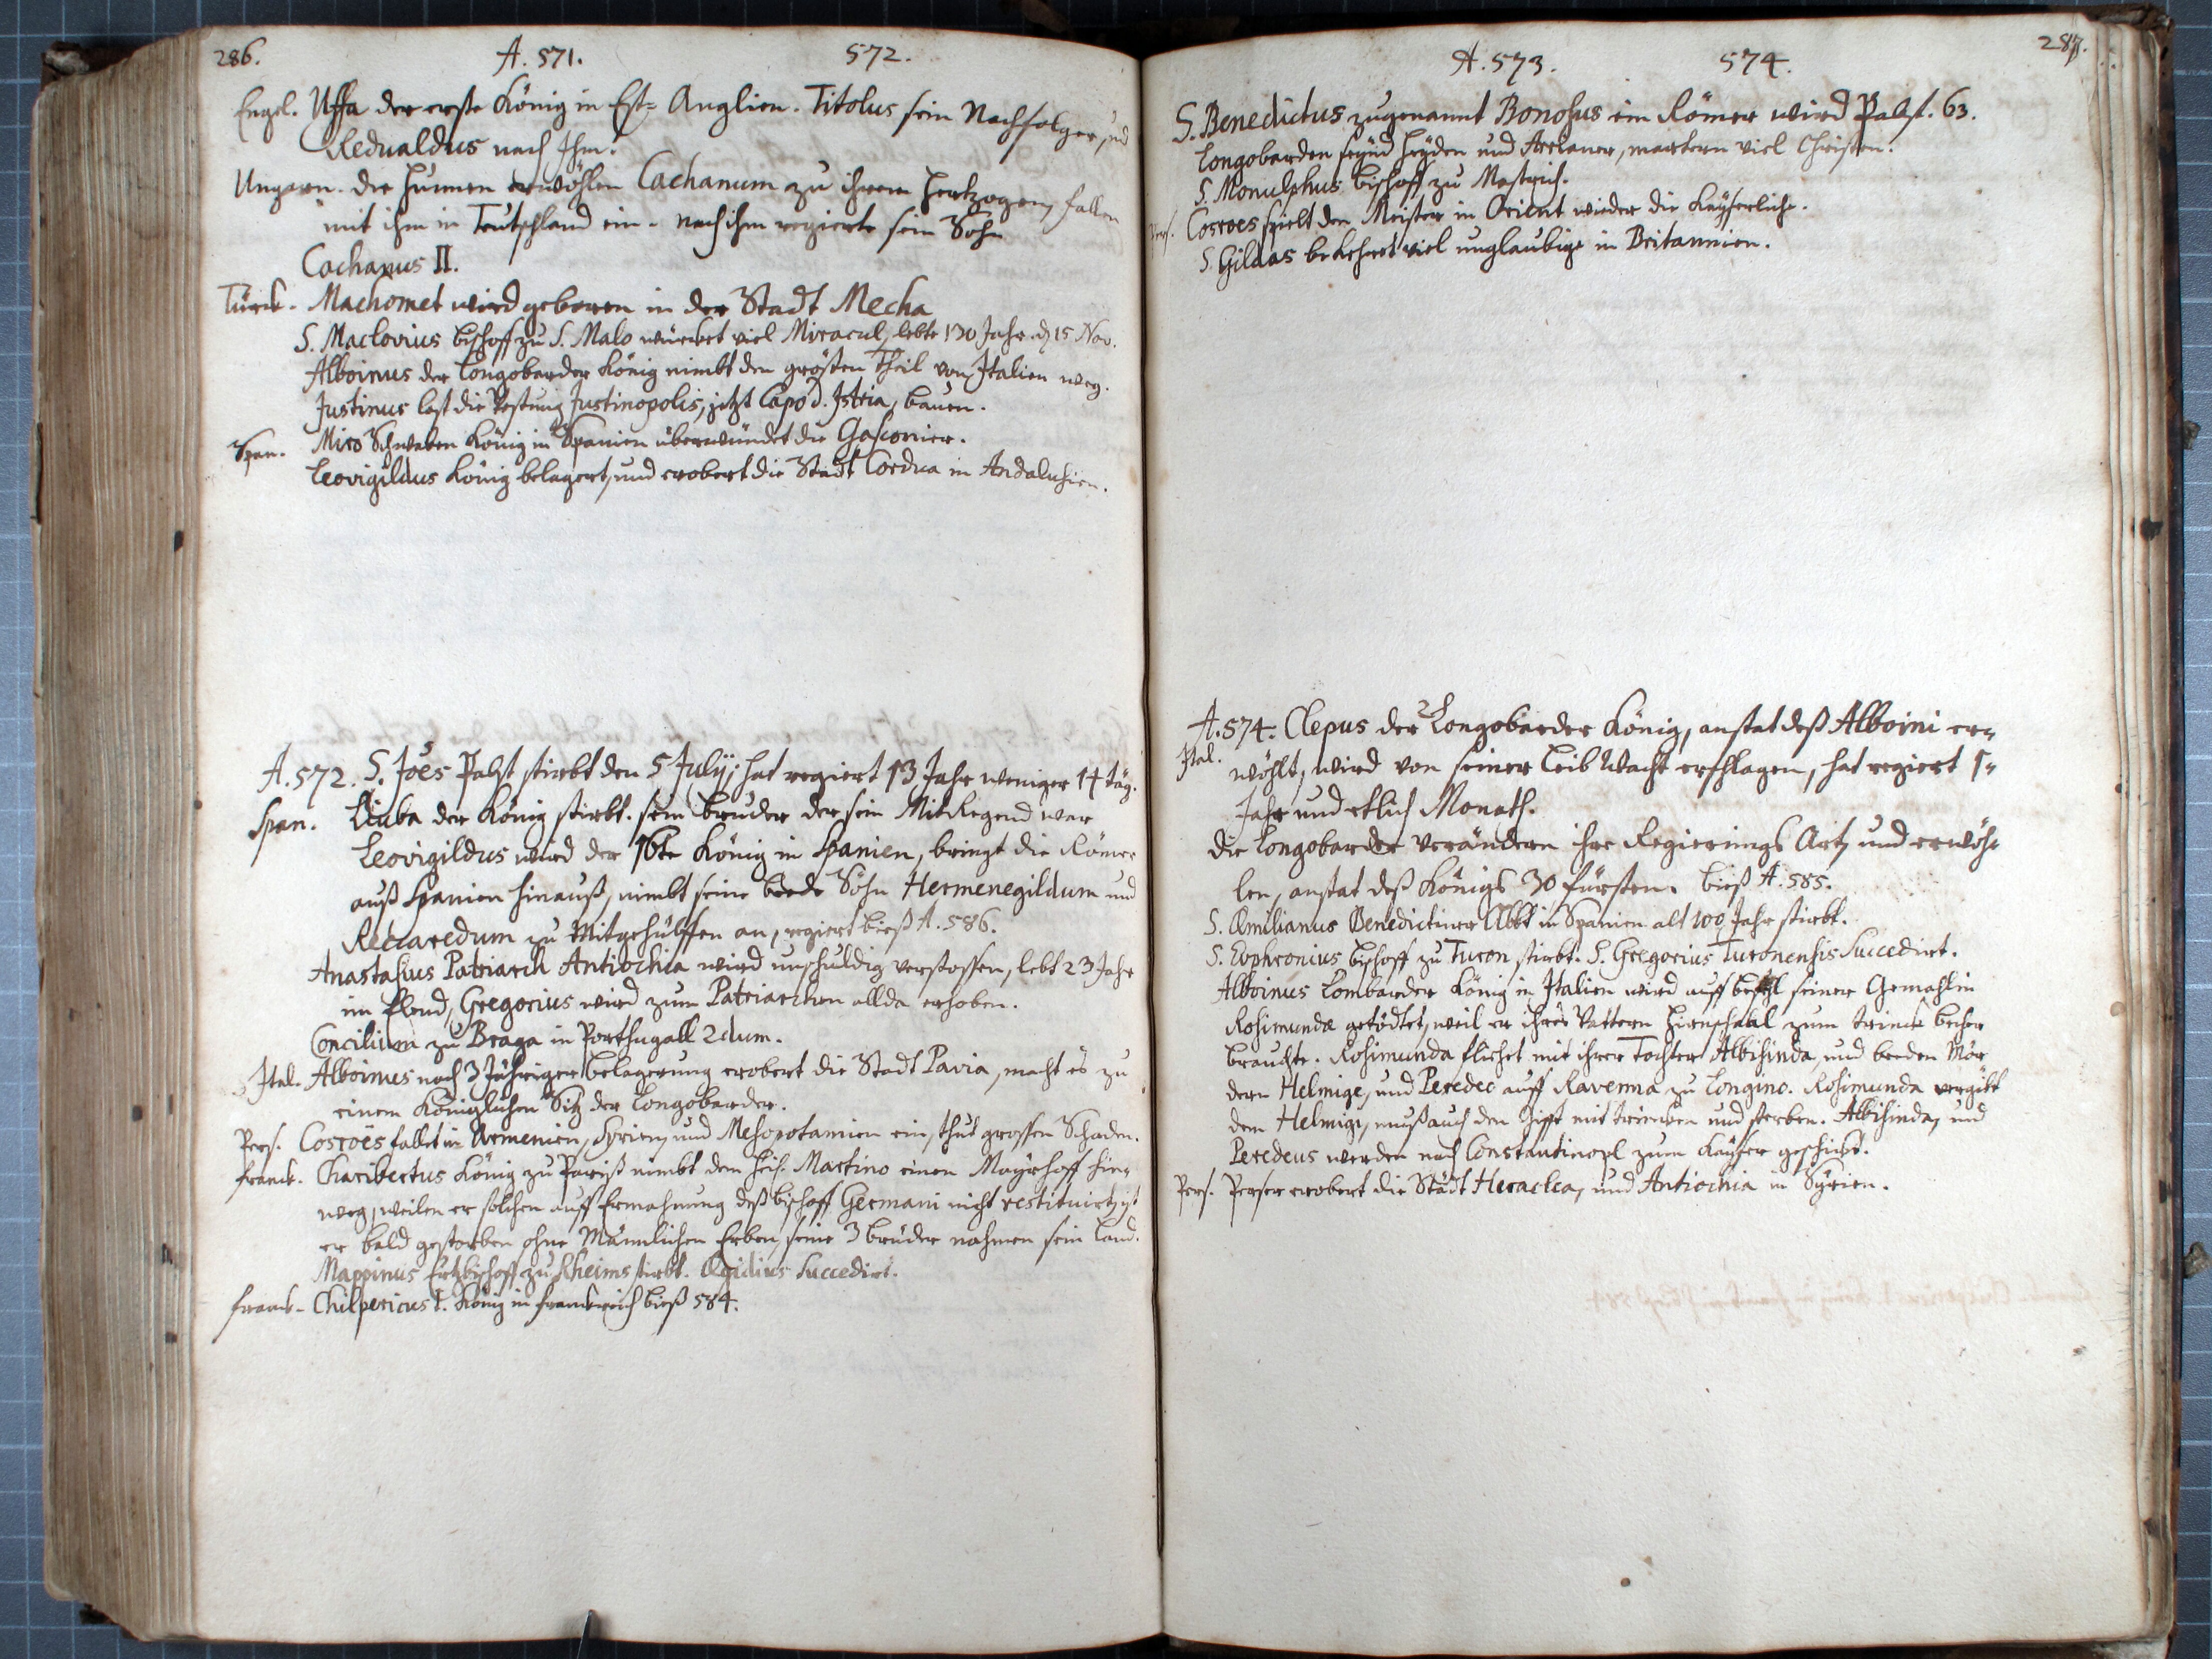 286. A. 571. 572.
Engel. Uffa der erste König in Est= Anglien. Titolus sein Nachfolger, und
Redualdus nach Ihm.
Ungarn. die Hunnen erwöhlen Cachanum zu ihrem Hertzogen, fallen
mit ihm in Teutschland ein. nach ihm regierte sein Sohn
Cachanus II.
Türck. Machomet wird geboren in der Stadt Mecha
S. Maclovius Bischoff zu S. Malo würcket viel Miracul, lebte 130 Jahr. 15 Nov.
Alboinus der Longobarder König nimbt den grösten Theil von Italien weg.
Justinus last die Vestung Justinopolis, jetzt Capo d. Istria, bauen.
Span. Miro Schwaben König in Spanien überwündet die Gasconier.
Leovigildus König belagert, und erobert die Stadt Cordua in Andalusien.
A. 572. S. Joēs Pabst stirbt den 5 Julÿ; hat regiert 13 Jahr weniger 14 täg.
Span. Liuba der König stirbt. sein Bruder der sein MitRegend war
Leovigildus wird der 16te König in Spanien, bringt die Römer
auß Spanien hinauß, nimbt seine beede Söhn Hermenegildum und
Reccaredum zu Mitgehülffen an, regiert bieß A. 586.
Anastasius Patriarch Antiochia wird unschuldig verstossen, lebt 23 Jahr
im Elend, Gregorius wird zum Patriarchen allda erhoben.
Concilium zu Braga in Porthugall 2dum.
Ital. Alboinus nach 3 Jähriger belagerung erobert die Stadt Pavia, macht es zu
einem Königlichen Sitz der Longobarder.
Pers. Cosroës fallet in Armenien, Syrien, und Mesopotamien ein, thut grossen Schaden.
Franck. Charibertus König zu Pariß nimbt dem Heil. Martino einen Mayrhoff hin=
weg, weilen er solchen auff Ermahnung deß Bischoff Germani nicht restituirt, ist
er bald gestorben ohne Männlichen Erben, seine 3 brüder nahmen sein Land.
Mappinus Ertzbischoff zu Rheims stirbt. Ægidius Succedirt.
Franck. Chilpericus I. König in Franckreich bieß 584.
A. 573. 574. 287.
S. Benedictus zugenannt Bonosus ein Römer wird Pabst. 63.
Longobarden seynd Heyden und Arrianer, martern viel Christen.
S. Monulphus Bischoff zu Mastrich.
Pers. Cosroes spielt den Meister in Orient wieder die Kayserliche.
S. Gildas bekehret viel unglaubige in Britannien.
A. 574. Clepus der 2 Longobarder König, anstat deß Alboini er=
Ital. wöhlt, wird von seiner Leib Wacht erschlagen, hat regiert 1=
Jahr und etlich Monath.
die Longobarder verändern ihre Regierings Art, und erwöh=
len, anstat deß Königs 30 Fürsten. bieß A. 585.
S. Æmilianus Benedictiner Abbt in Spanien alt 100 Jahr stirbt.
S. Eophronius Bischoff zu Turon stirbt. S. Gregorius Turonensis Succedirt.
Alboinus Lombarder König in Italien wird auff befehl seiner Gemahlin
Rosimunda getödtet, weil er ihres Vattern Hirnschaal zum trinck becher
brauchte. Rosimunda fliehet mit ihrer Tochter Albisinda, und beeden Mör
dern Helmige, und Peredeo auff Ravenna zu Longino. Rosimunda vergibt
dem Helmigi, muß auch den Gifft mit trincken und sterben. Albisinda, und
Peredeus werden nach Constantinopl zum Kayser geschickt.
Pers. Perser erobert die Städt Heraclea, und Antiochia in Syrien.